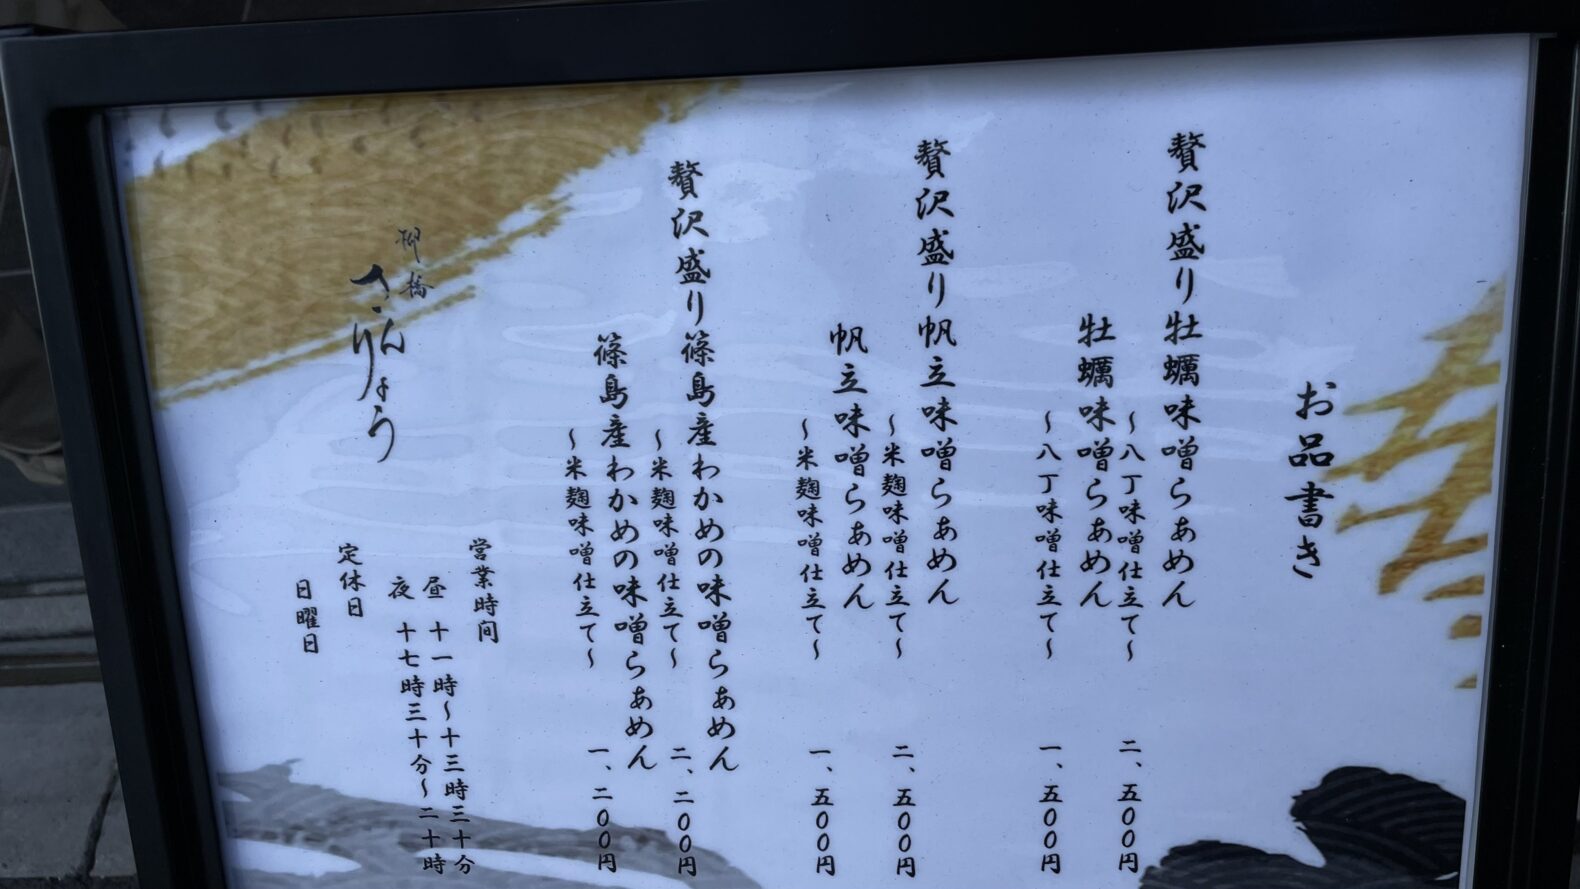 お品書き
贅沢盛り牡蠣味噌らあめん
〜八丁味噌仕立て〜
二、五〇〇円
牡蠣味噌らあめん
〜八丁味噌仕立て〜
一、五〇〇円
贅沢盛り帆立味噌らあめん
〜米麹味噌仕立て〜
二、五〇〇円
帆立味噌らあめん
〜米麹味噌仕立て〜
一、五〇〇円
贅沢盛り篠島産わかめの味噌らあめん
〜米麹味噌仕立て〜
二、二〇〇円
篠島産わかめの味噌らあめん
〜米麹味噌仕立て〜
一、二〇〇円
営業時间
昼 十一時〜十三時三十分
夜 十七時三十分〜二十時
定休日
日曜日
柳橋
さんりょう